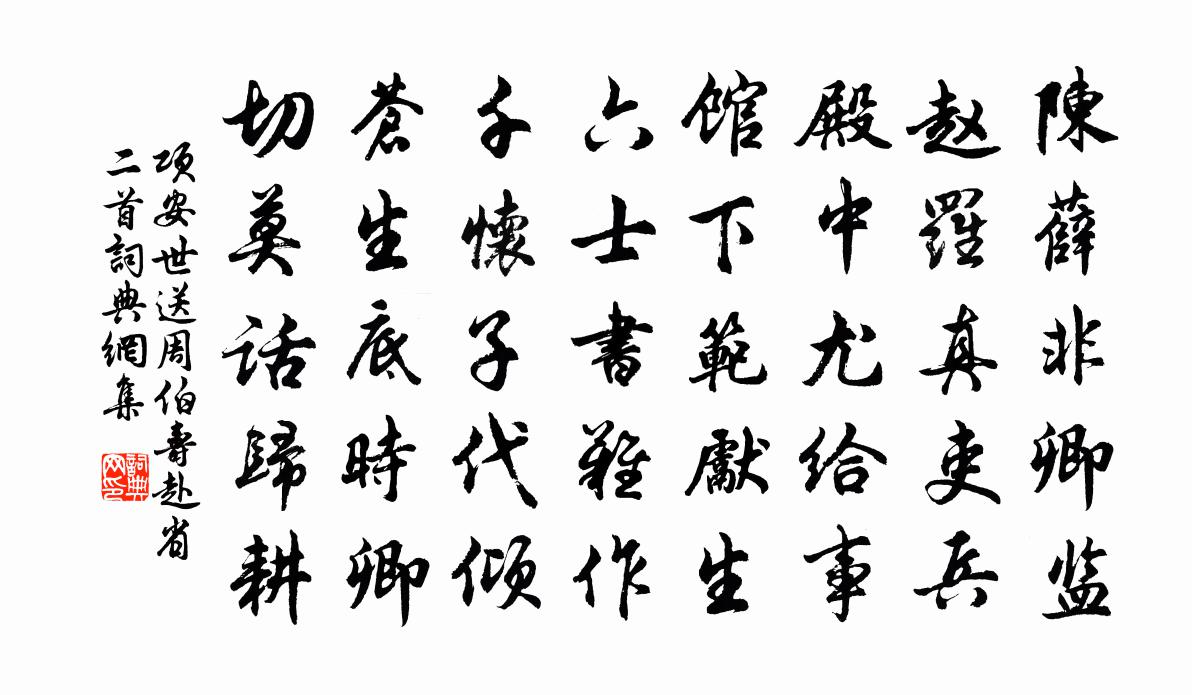 陳薛非卿监
赵羅真吏兵
殿中尤给事
馆下範獻生
六士書難作
千懷子代倾
蒼生底時卿
切莫话歸耕
项安世送周伯壽赴省
二首詞典網集
詞典
网印